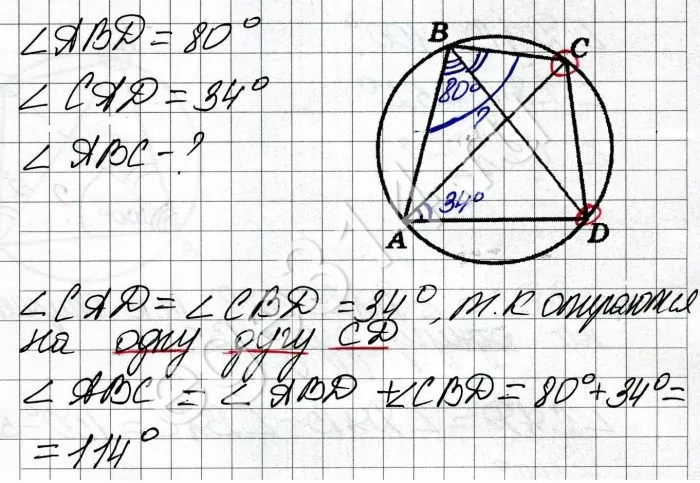 ∠ABD = 80°
∠CAD = 34°
∠ABC - ?
B
C
80°
?
34°
A
D
∠CAD = ∠CBD = 34°, т.к опираются
на одну дугу CD
∠ABC = ∠ABD + ∠CBD = 80° + 34° =
= 114°